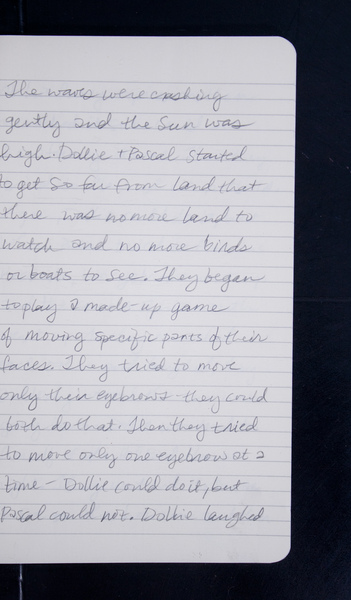 The waves were crashing
gently and the sun was
high. Dollie + Pascal started
to get so far from land that
there was no more land to
watch and no more birds
or boats to see. They began
to play a made-up game
of moving specific parts of their
faces. They tried to move
only their eyebrows - they could
both do that. Then they tried
to move only one eyebrow at a
time - Dollie could do it, but
Pascal could not. Dollie laughed